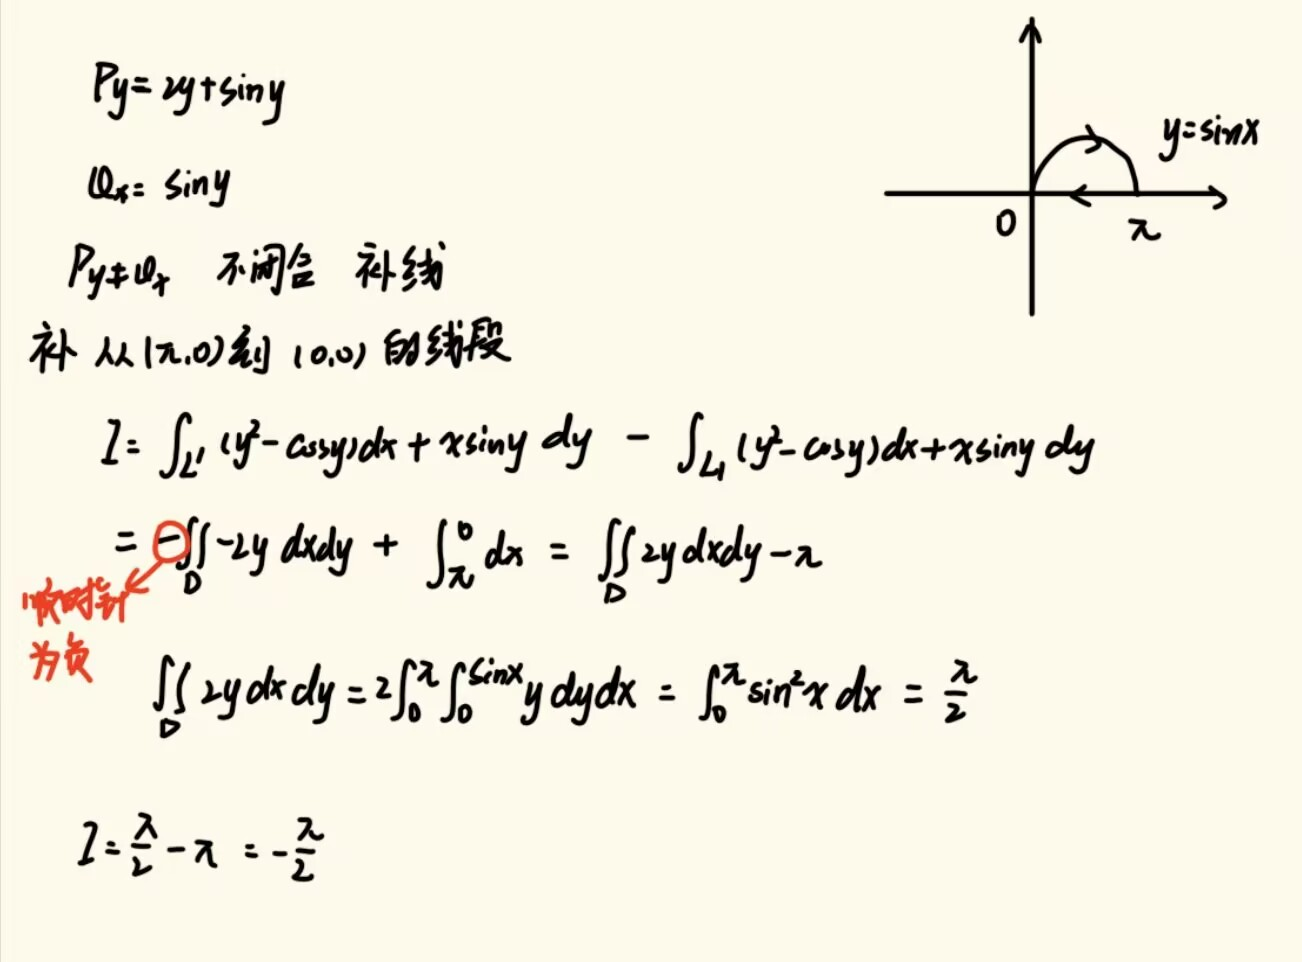 Py=2y+siny
Qx=siny
Py≠Qx 不闭合 补线
补 从(π.0)到(0.0)的线段
I=∫L'(y²-cosy)dx+xsiny dy - ∫L₁(y²-cosy)dx+xsiny dy
=-∬D-2y dxdy + ∫π0dx = ∬D2ydxdy-π
顺时针
为负
∬D 2ydxdy=2∫0π∫0sinx ydydx = ∫0πsin²x dx = π/2
I=π/2-π=-π/2
y=sinx
0
π